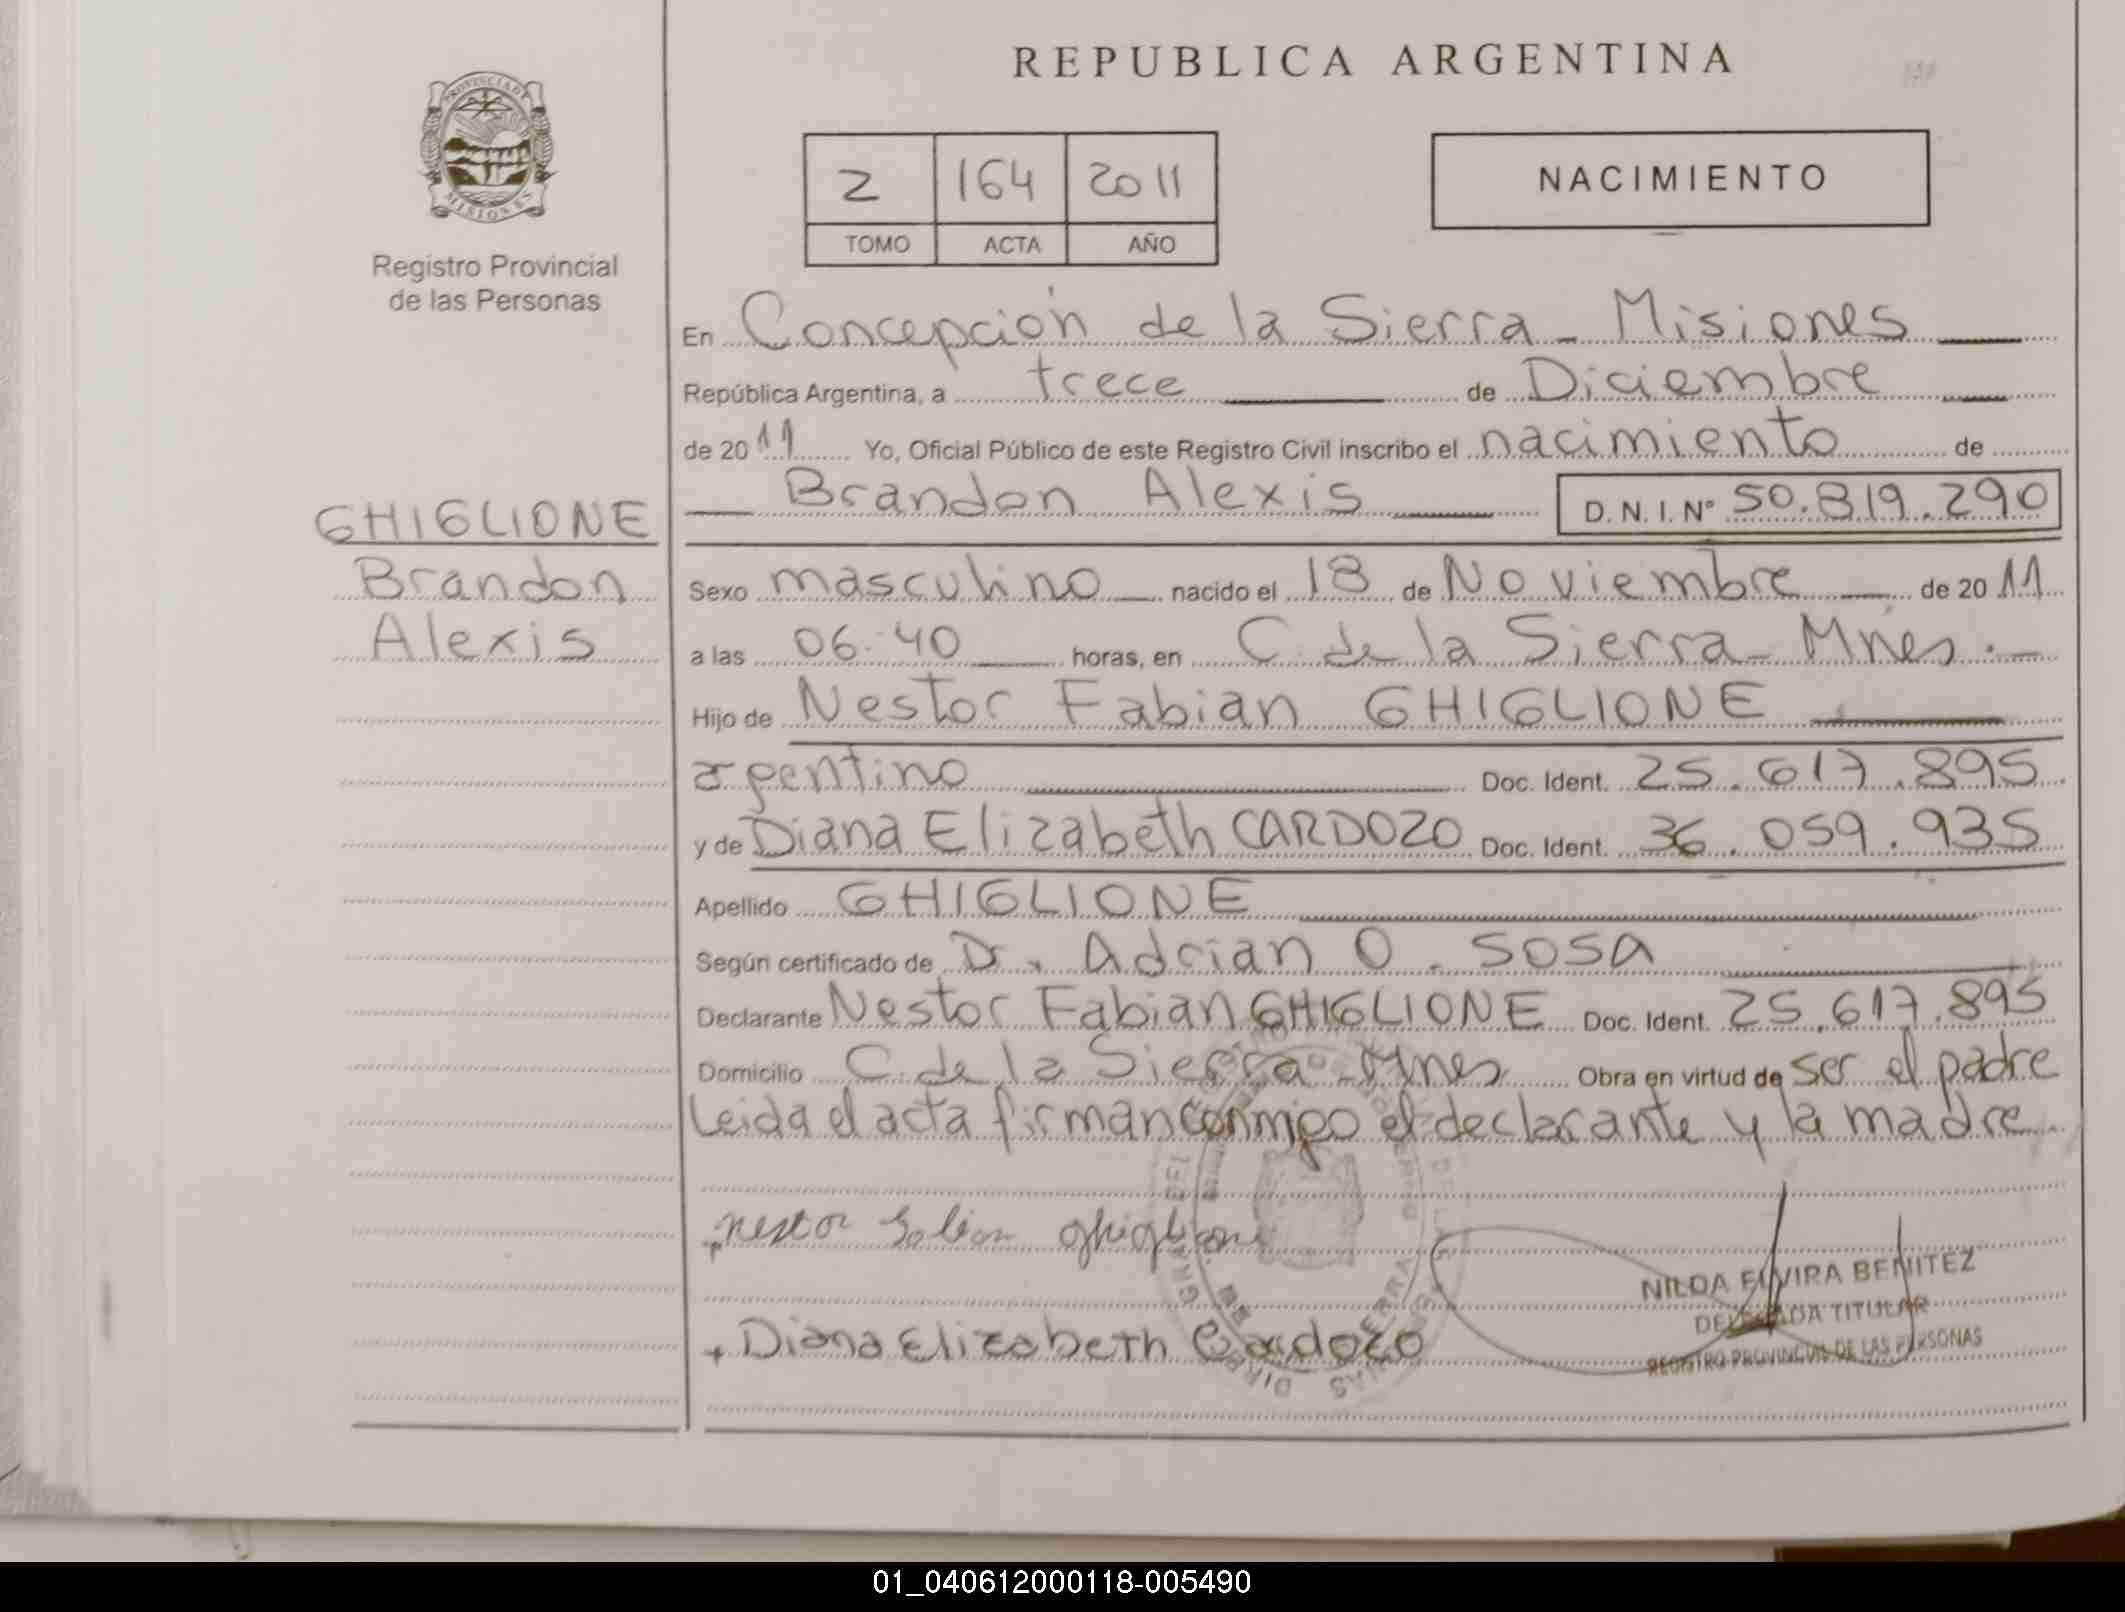 REPUBLICA ARGENTINA
PROVINCIA DE
MISIONES
Registro Provincial
de las Personas
2 164 2011
TOMO ACTA AÑO
NACIMIENTO
En Concepción de la Sierra - Misiones
República Argentina, a trece de Diciembre
de 2011 Yo, Oficial Público de este Registro Civil inscribo el nacimiento de
Brandon Alexis D.N.I.Nº 50.819.290
GHIGLIONE
Brandon
Alexis
Sexo masculino nacido el 18 de Noviembre de 2011
a las 06:40 horas, en C. de la Sierra - Mnes.
Hijo de Nestor Fabian GHIGLIONE
argentino Doc. Ident. 25.617.895
y de Diana Elizabeth CARDOZO Doc. Ident. 36.059.935
Apellido GHIGLIONE
Según certificado de Dr. Adrian O. SOSA
Declarante Nestor Fabian GHIGLIONE Doc. Ident. 25.617.895
Domicilio C. de la Sierra - Mnes Obra en virtud de ser el padre
Leida el acta firman conmigo el declarante y la madre.
nestor fabian ghiglione
NILDA ELVIRA BENITEZ
DELEGADA TITULAR
REGISTRO PROVINCIAL DE LAS PERSONAS
Diana Elizabeth Cardozo
01_040612000118-005490